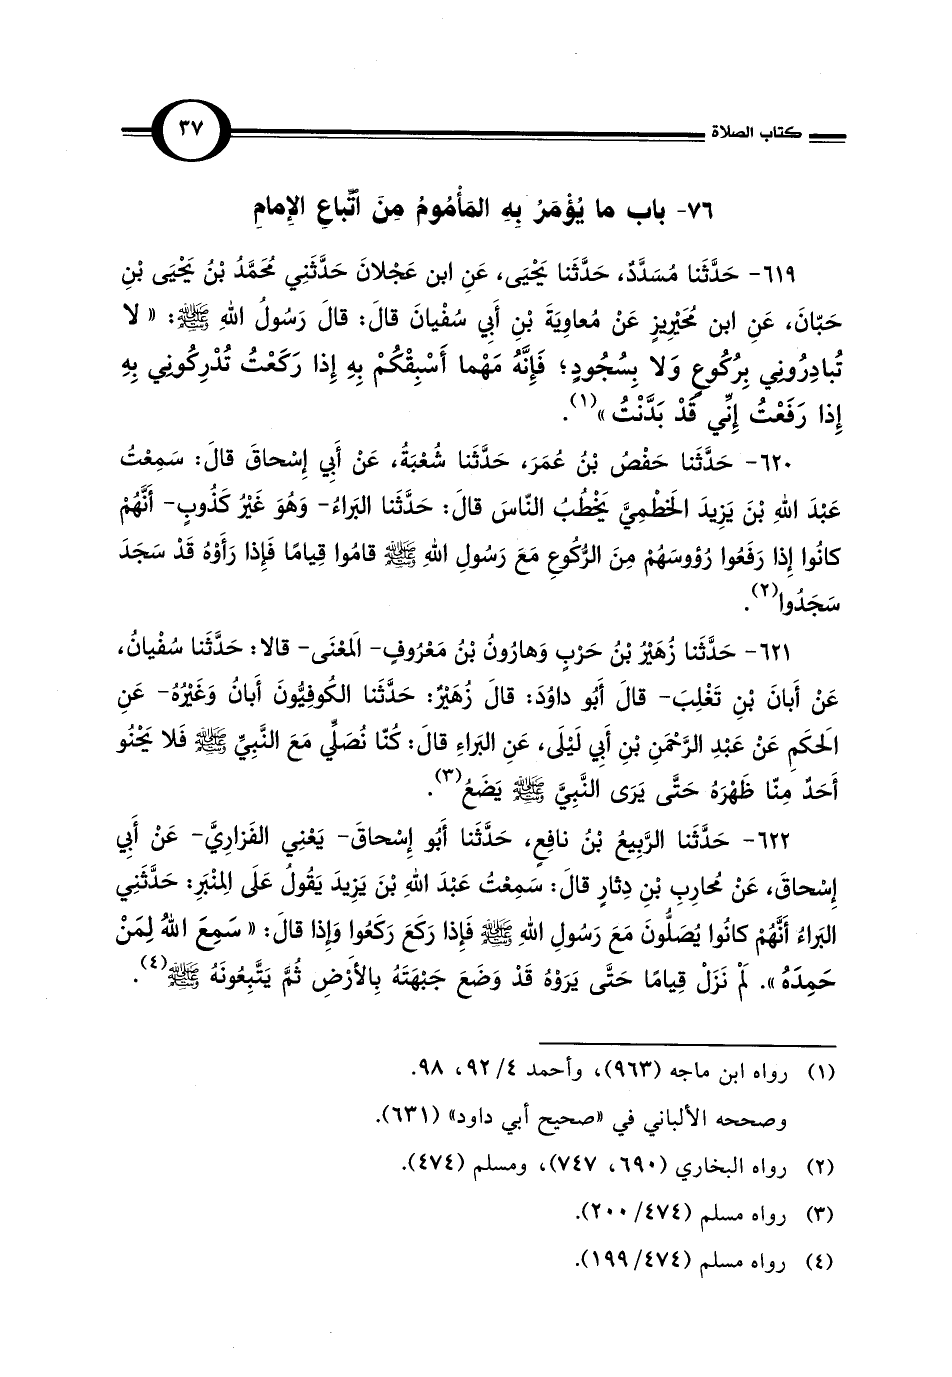 كتاب الصلاة
٣٧
٧٦- باب ما يُؤْمَرُ بِهِ المَأْمُومُ مِنَ اتِّباعِ الإِمامِ
٦١٩- حَدَّثَنا مُسَدَّدٌ، حَدَّثَنا يَحْيَى، عَنِ ابن عَجْلانَ حَدَّثَنِي مُحَمَّدُ بْنُ يَحْيَى بْنِ
حَبّانَ، عَنِ ابن مُحَيْرِيزٍ عَنْ مُعاوِيَةَ بْنِ أَبِي سُفْيانَ قالَ: قالَ رَسُولُ اللهِ ﷺ: « لا
تُبادِرُونِي بِرُكُوعٍ وَلا بِسُجُودٍ؛ فَإِنَّهُ مَهْما أَسْبِقْكُمْ بِهِ إِذا رَكَعْتُ تُدْرِكُونِي بِهِ
إِذا رَفَعْتُ إِنِّي قَدْ بَدَّنْتُ »(١).
٦٢٠- حَدَّثَنا حَفْصُ بْنُ عُمَرَ، حَدَّثَنا شُعْبَةُ، عَنْ أَبِي إِسْحاقَ قالَ: سَمِعْتُ
عَبْدَ اللهِ بْنَ يَزِيدَ الخَطْمِيَّ يَخْطُبُ النّاسَ قالَ: حَدَّثَنا البَراءُ- وَهُوَ غَيْرُ كَذُوبٍ- أَنَّهُمْ
كانُوا إِذا رَفَعُوا رُؤوسَهُمْ مِنَ الرُّكُوعِ مَعَ رَسُولِ اللهِ ﷺ قامُوا قِيامًا فَإِذا رَأَوْهُ قَدْ سَجَدَ
سَجَدُوا(٢).
٦٢١- حَدَّثَنا زُهَيْرُ بْنُ حَرْبٍ وَهارُونُ بْنُ مَعْرُوفٍ- المَعْنَى- قالا: حَدَّثَنا سُفْيانُ،
عَنْ أَبانَ بْنِ تَغْلِبَ- قالَ أَبُو داوُدَ: قالَ زُهَيْرٌ: حَدَّثَنا الكُوفِيُّونَ أَبانُ وَغَيْرُهُ- عَنِ
الحَكَمِ عَنْ عَبْدِ الرَّحْمَنِ بْنِ أَبِي لَيْلَى، عَنِ البَراءِ قالَ: كُنّا نُصَلِّي مَعَ النَّبِيِّ ﷺ فَلا يَحْنُو
أَحَدٌ مِنّا ظَهْرَهُ حَتَّى يَرى النَّبِيَّ ﷺ يَضَعُ(٣).
٦٢٢- حَدَّثَنا الرَّبِيعُ بْنُ نافِعٍ، حَدَّثَنا أَبُو إِسْحاقَ- يَعْنِي الفَزارِيَّ- عَنْ أَبِي
إِسْحاقَ، عَنْ مُحارِبِ بْنِ دِثارٍ قالَ: سَمِعْتُ عَبْدَ اللهِ بْنَ يَزِيدَ يَقُولُ عَلَى المِنْبَرِ: حَدَّثَنِي
البَراءُ أَنَّهُمْ كانُوا يُصَلُّونَ مَعَ رَسُولِ اللهِ ﷺ فَإِذا رَكَعَ رَكَعُوا وَإِذا قالَ: « سَمِعَ اللهُ لِمَنْ
حَمِدَهُ ». لَمْ نَزَلْ قِيامًا حَتَّى يَرَوْهُ قَدْ وَضَعَ جَبْهَتَهُ بِالأَرْضِ ثُمَّ يَتَّبِعُونَهُ ﷺ(٤).
(١) رواه ابن ماجه (٩٦٣)، وأحمد ٤/ ٩٢، ٩٨.
وصححه الألباني في «صحيح أبي داود» (٦٣١).
(٢) رواه البخاري (٦٩٠، ٧٤٧)، ومسلم (٤٧٤).
(٣) رواه مسلم (٤٧٤/ ٢٠٠).
(٤) رواه مسلم (٤٧٤/ ١٩٩).